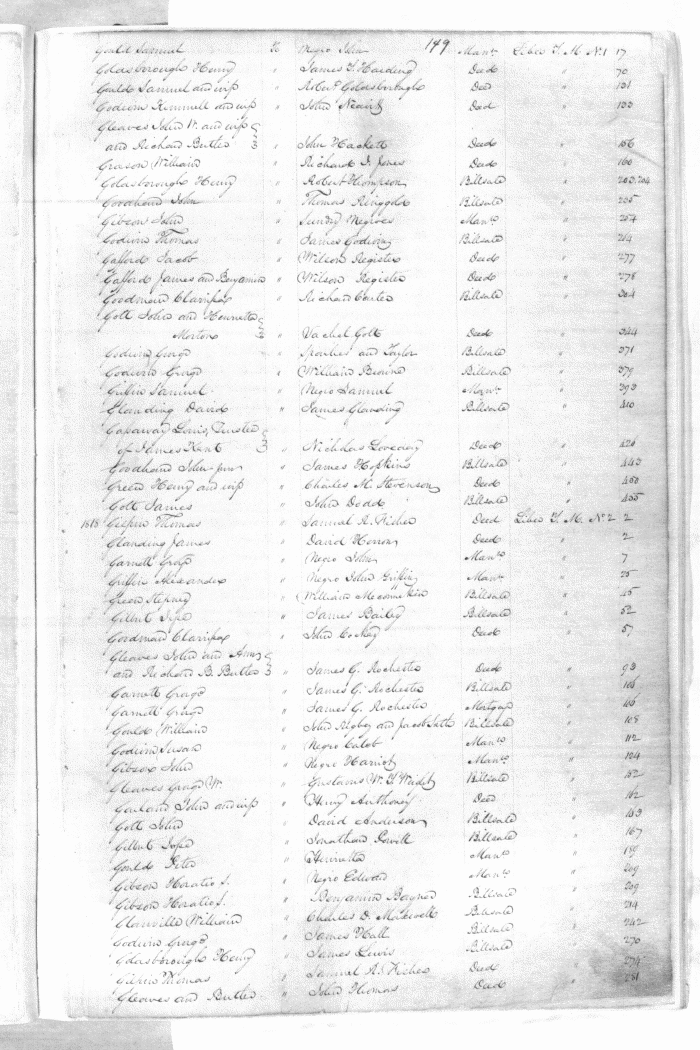 149
Gould Samuel to Negro John Mann. Liber T. M. No. 1 17
Goldsborough Henry " James T. Harding Deed " 70
Gould Samuel and wife " Robert Goldsborough Deed " 131
Godwin Kimmell and wife " John Deed " 133
Gleaves John W. and wife
and Richard Butler " John Hackett Deed " 156
Grason William " Richard I. Jones Deed " 160
Goldsborough Henry " Robert Thompson Billsale " 203.204
Goodhand John " Thomas Ringgold Billsale " 205
Gibson John " Sundry Negroes Mann. " 207
Godwin Thomas " James Godwin Billsale " 214
Gafford Jacob " Wilson Register Deed " 277
Gafford James and Benjamin " Wilson Register Deed " 278
Goodman Clarrissa " Richard Carter Billsale " 304
Gott John and Henrietta
Morton " Vachel Gott Deed " 344
Godwin George " and Taylor Billsale " 371
Godwin George " William Browne Billsale " 379
Griffin Samuel " Negro Samuel Mann. " 393
Glanding David " James Glanding Billsale " 410
Gassaway Louis, Trustee
of James Kent " Nicholas Loveday Deed " 421
Goodhand John Junr " James Hopkins Billsale " 443
Green Henry and wife " Charles M. Stevenson Deed " 450
Gott James " John Dodd Billsale " 455
1818 Gilpin Thomas " Samuel A. Deed Liber T. M. No. 2 2
Glanding James " David Deed " 2
Garnett George " Negro John Mann. " 7
Griffin Alexander " Negro John Griffin Mann. " 25
Green Stepney " William Meconnekin Billsale " 45
Gilbert Jesse " James Bailey Billsale " 52
Goodman Clarrissa " John Deed " 57
Gleaves John and Ann
and Richard B. Butler " James G. Rochester Deed " 93
Garnett George " James G. Rochester Billsale " 105
Garnett George " James G. Rochester Mortgage " 106
Gould William " John Rigbey and Jacob Billsale " 108
Godwin Susan " Negro Calob Mann. " 112
Gibson John " Negro Harriot Mann. " 124
Gleaves George W. " Gustavus W. T. Billsale " 152
Garland John and wife " Henry Anthoney Deed " 162
Gott John " David Anderson Billsale " 163
Gilbert Jesse " Jonathan Billsale " 167
Gould Peter " Henrietta Mann. " 189
Gibson Horatio S. " Negro Edward Mann. " 209
Gibson Horatio S. " Benjamin Billsale " 209
William " Charles D. Billsale " 214
Godwin George " James Hall Billsale " 242
Goldsborough Henry " James Lewis Billsale " 270
Gilpin Thomas " Samuel A. Deed " 274
Gleaves and Butler " John Thomas Deed " 281